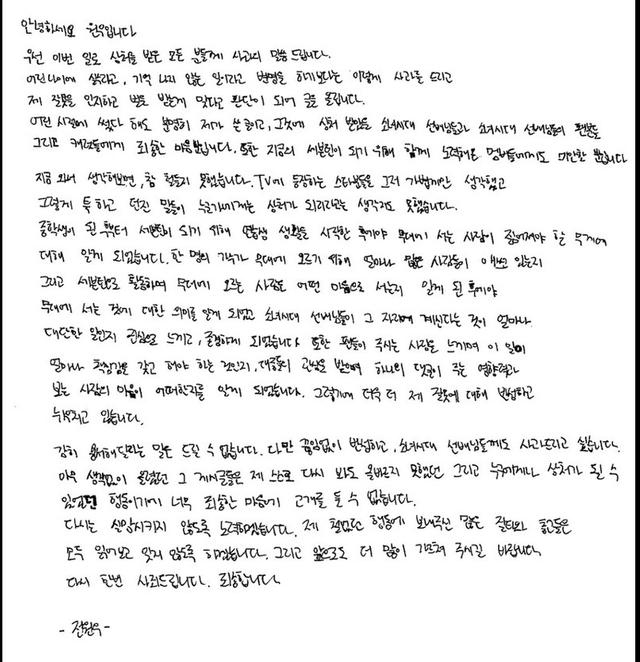 안녕하세요 원우입니다
우선 이번 일로 상처를 받은 모든 분들께 사과의 말씀 드립니다.
어린나이에 썼다고, 기억 나지 않는 일이라고 변명을 하기보다는 이렇게 사과를 드리고
제 잘못을 인지하고 벌도 받는게 맞다고 판단이 되어 글을 올립니다.
어린 시절에 썼다 해도 분명히 제가 쓴 글이고, 그것에 상처 받았을 소녀시대 선배님들과 소녀시대 선배님들의 팬분들
그리고 캐럿들에게 죄송한 마음뿐입니다. 또한 지금의 세븐틴이 되기 위해 함께 노력해온 멤버들에게도 미안할 뿐입니다
지금 와서 생각해보면, 참 철들지 못했습니다. TV에 등장하는 스타분들을 그저 가볍게만 생각했고
그렇게 툭 하고 던진 말들이 누군가에게는 상처가 되리라고는 생각지도 못했습니다.
중학생이 된 후부터 세븐틴이 되기 위해 연습생 생활을 시작한 후에야 무대에 서는 사람이 짊어져야 할 무게에
대해 알게 되었습니다. 한 명의 가수가 무대에 오르기 위해 얼마나 많은 사람들이 애쓰고 있는지
그리고 세븐틴으로 활동하며 무대에 오르는 사람은 어떤 마음으로 서는지 알게 된 후에야
무대에 서는 것에 대한 의미를 알게 되었고 소녀시대 선배님들이 그 자리에 계신다는 것이 얼마나
대단한 일인지 진심으로 느끼고, 존경하게 되었습니다 또한 팬들이 주시는 사랑을 느끼며 이 일이
얼마나 책임감을 갖고 해야 하는 것인지, 대중들의 관심을 받으며 하나의 댓글이 주는 영향력과
보는 사람의 마음이 어떠한지를 알게 되었습니다. 그렇기에 더욱 더 제 잘못에 대해 반성하고
뉘우치고 있습니다.
감히 용서해달라는 말은 드릴 수 없습니다. 다만 끊임없이 반성하고, 소녀시대 선배님들께도 사과드리고 싶습니다.
아무 생각없이 올렸었던 그 게시글들은 제 스스로 다시 봐도 올바르지 못했던 그리고 누구에게나 상처가 될 수
있었던 행동이기에 너무 죄송한 마음에 고개를 들 수 없습니다.
다시는 실망시키지 않도록 노력하겠습니다. 제 철없던 행동에 보내주신 많은 질타와 충고들은
모두 읽어보고 잊지 않도록 하겠습니다. 그리고 앞으로도 더 많이 가르쳐 주시길 바랍니다.
다시 한번 사죄드립니다. 죄송합니다.
- 전원우 -